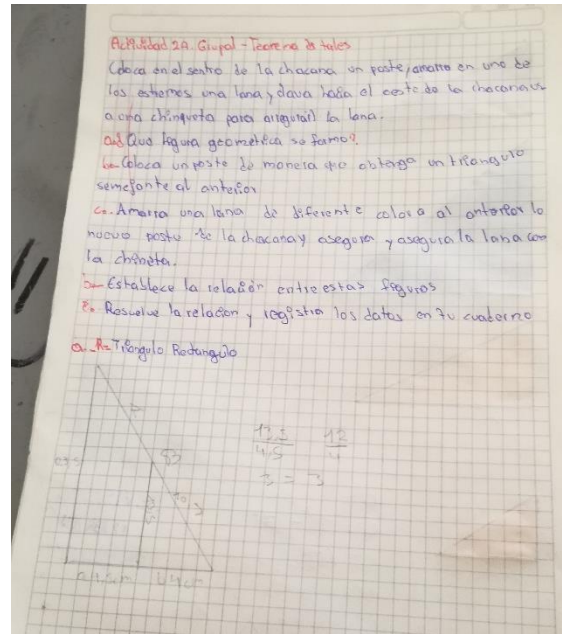 Actividad 2A. Grupal - Teorema de tales
Coloca en el sentro de la chacana un poste, amarra en uno de
los estremos una lana, y clava hasta el ceste de la chacana us
a cha chinqueta para asegurar la lana.
a.- Que figura geometrica se formo?
b.- Coloca un poste de manera que obtenga un triangulo
semejante al anterior
c.- Amarra una lana de diferente colora al anterior lo
nuevo poste de la chacana y asegura y asegura la lana con
la chineta.
D.- Establece la relación entre estas figuras
E.- Resuelve la relacion y registra los datos en tu cuaderno
a.-R= Triangulo Rectangulo
13.5 12
4.5 4
3 = 3